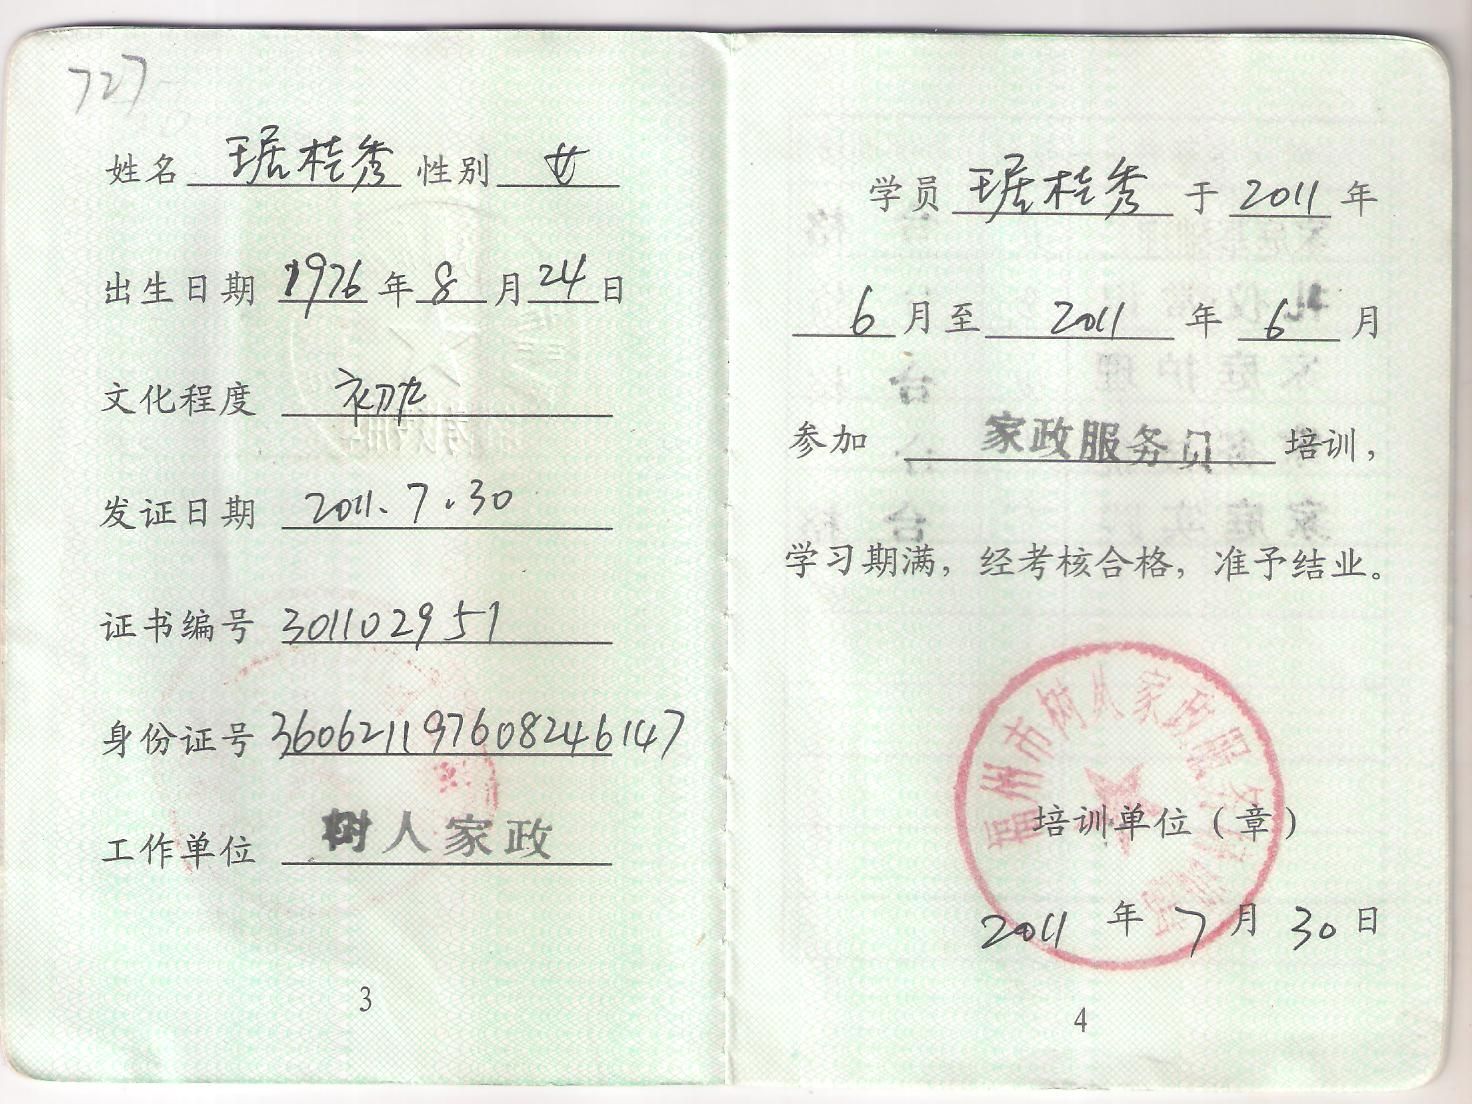 727
姓名 琚桂秀 性别 女
出生日期 1976 年 8 月 24 日
文化程度 初中
发证日期 2011.7.30
证书编号 301102951
身份证号 360621197608246147
工作单位 树人家政
3
学员 琚桂秀 于 2011 年
6 月至 2011 年 6 月
参加 家政服务员 培训，
学习期满，经考核合格，准予结业。
福州市树人家政服务
培训单位（章）
2011 年 7 月 30 日
4